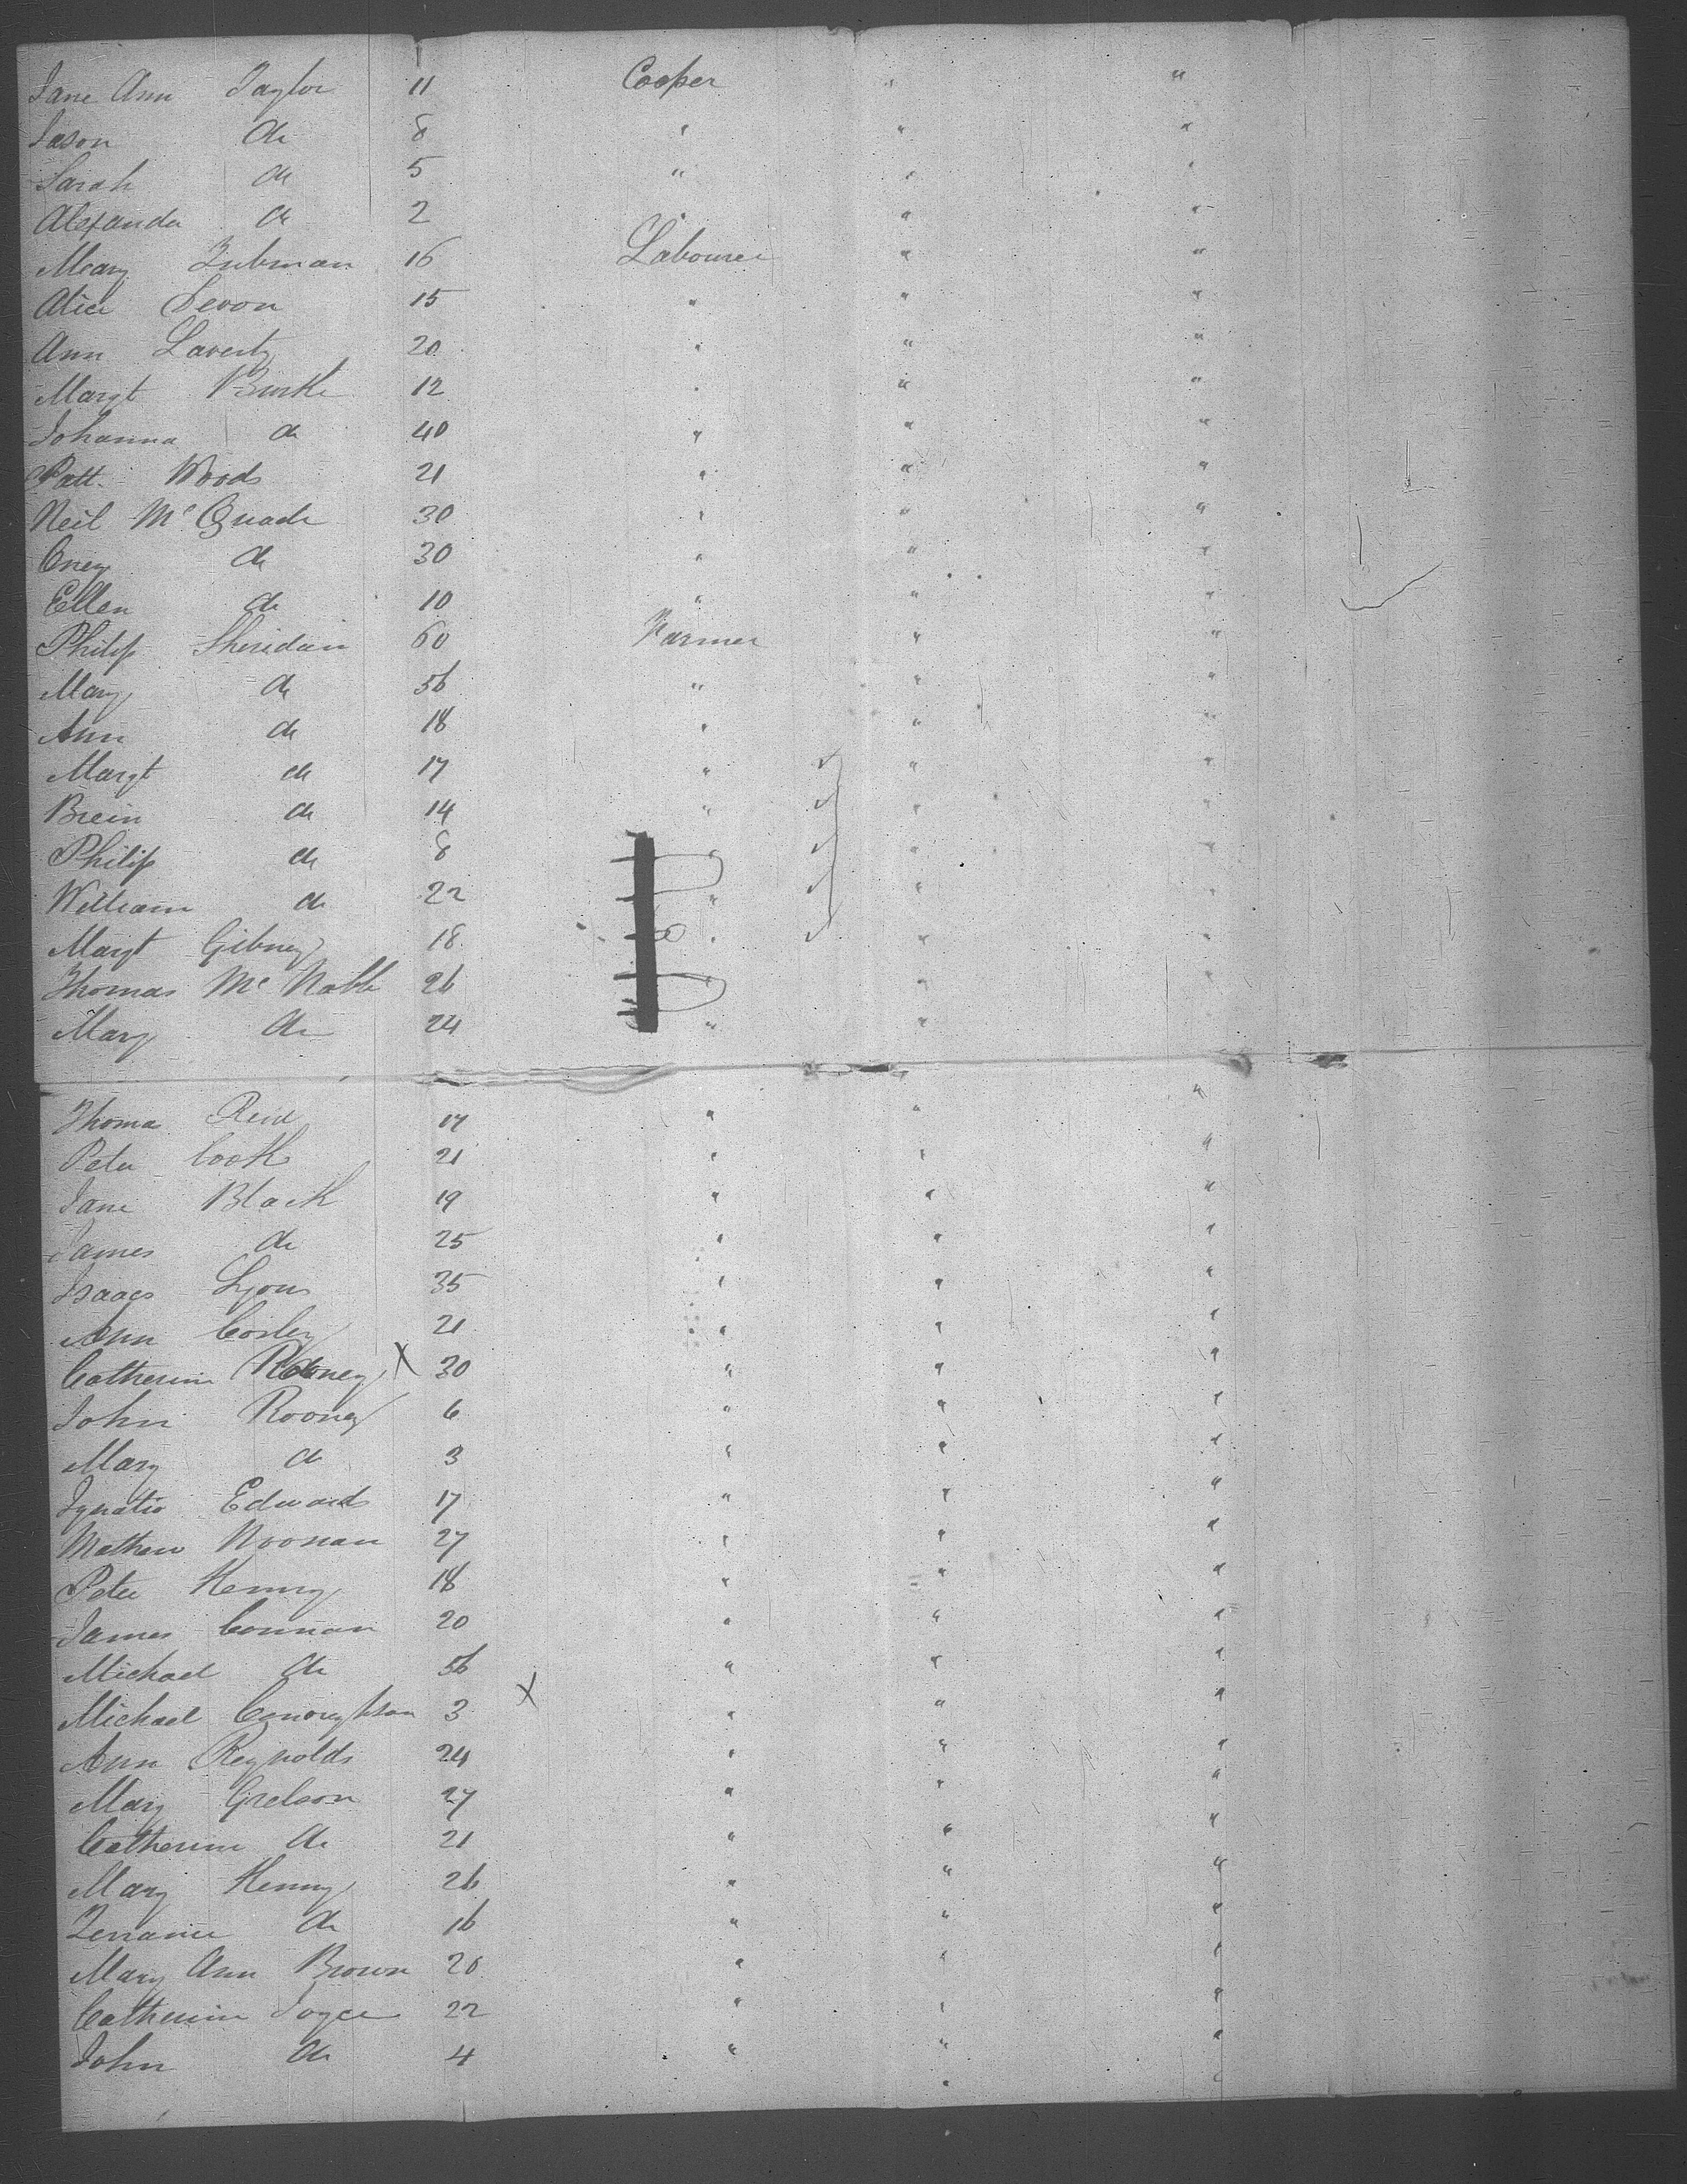 Jane Ann Taylor 11 Cooper " "
Jason do 8 " " "
Sarah do 5 " " "
Alexander do 2 " " "
Mary Tubman 16 Labourer " "
Alice Sevon 15 " " "
Ann Laverty 20 " " "
Margt Burke 12 " " "
Johanna do 40 " " "
Patt. Woods 21 " " "
Neil McQuade 30 " " "
do 30 " " "
Ellen do 10 " " "
Philip Sheridan 60 Farmer " "
Mary do 56 " " "
Ann do 18 " " "
Margt do 17 " " "
Brein do 14 " " "
Philip do 8 " " "
William do 22 " " "
Margt Gibney 18 " " "
Thomas McNabb 26 " " "
Mary do 24 " "
Thoma Reid 17 " " "
Peter Cook 21 " " "
Jane Black 19 " " "
James do 25 " " "
Isaacs Lyons 35 " " "
Ann Corley 21 " " "
Catherine Rooney X 30 " " "
John Rooney 6 " " "
Mary do 3 " " "
Ignatio Edwards 17 " " "
Mathew Noonan 27 " " "
Peter Henry 18 " " "
James Connan 20 " " "
Michael do 56 " " "
Michael 3 X " " "
Ann Reynolds 24 " " "
Mary Grelson 27 " " "
Catherine do 21 " " "
Mary Henry 26 " " "
Terrance do 16 " " "
Mary Ann Brown 20 " " "
Catherine Joyce 22 " " "
John do 4 " " "